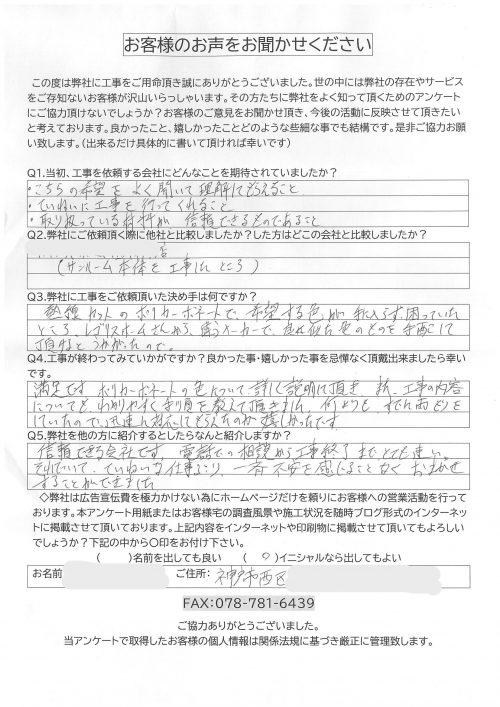 お客様のお声をお聞かせください
この度は弊社に工事をご用命頂き誠にありがとうございました。世の中には弊社の存在やサービス
をご存知ないお客様が沢山いらっしゃいます。その方たちに弊社をよく知って頂くためのアンケート
にご協力頂けないでしょうか？お客様のご意見をお聞かせ頂き、今後の活動に反映させて頂きたい
と考えております。良かったこと、嬉しかったことどのような些細な事でも結構です。是非ご協力お願
い致します。（出来るだけ具体的に書いて頂ければ幸いです）
Q1.当初、工事を依頼する会社にどんなことを期待されていましたか？
・こちらの希望をよく聞いて理解してもらえること
・ていねいに工事を行ってくれること
・取り扱っている材料が信頼できるものであること
Q2.弊社にご依頼頂く際に他社と比較しましたか？した方はどこの会社と比較しましたか？
否
（サンルーム本体を工事した ところ）
Q3.弊社に工事をご依頼頂いた決め手は何ですか？
熱線カットのポリカーボネートで、希望する色が手に入らず、困っていた
ところ、レブリスホームさんから、違うメーカーで、
頂けるとうかがったので。
Q4.工事が終わってみていかがですか？良かった事・嬉しかった事を忌憚なく頂戴出来ましたら幸い
です。
満足です。ポリカーボネートの色について詳しく説明して頂き、又、工事の内容
についても、わかりやすく手順を教えて頂きました。何よりも、
していたので、迅速に対応してもらえたのが嬉しかったです。
Q5.弊社を他の方に紹介するとしたらなんと紹介しますか？
信頼できる会社です。電話での相談から工事終了まで、とても速い。
それでいて、ていねいな仕事ぶり、一番不安を感じることなく、おまかせ
することができました。
◇弊社は広告宣伝費を極力かけない為にホームページだけを頼りにお客様への営業活動を行って
おります。本アンケート用紙またはお客様宅の調査風景や施工状況を随時ブログ形式のインターネッ
トに掲載させて頂いております。上記内容をインターネットや印刷物に掲載させて頂いてもよろしい
でしょうか？下記の中から〇印をお付け下さい。
（　　）名前を出しても良い　（ ○ ）イニシャルなら出してもよい
お名前　ご住所：神戸市西区
FAX:078-781-6439
ご協力ありがとうございました。
当アンケートで取得したお客様の個人情報は関係法規に基づき厳正に管理致します。